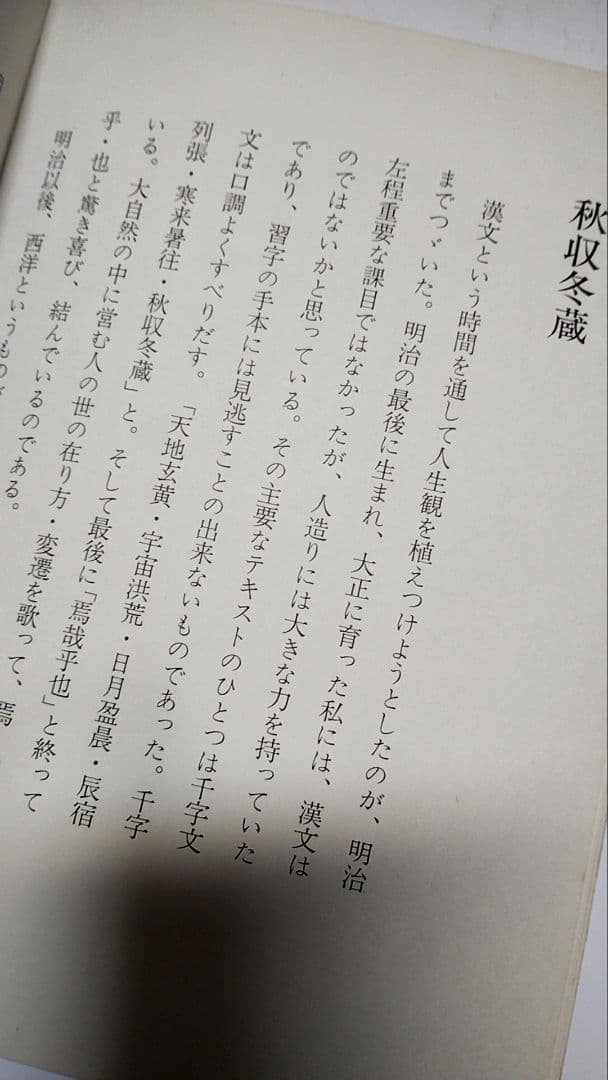 秋収冬蔵
漢文という時間を通して人生観を植えつけようとしたのが、明治
までつゞいた。明治の最後に生まれ、大正に育った私には、漢文は
左程重要な課目ではなかったが、人造りには大きな力を持っていた
のではないかと思っている。その主要なテキストのひとつは千字文
であり、習字の手本には見逃すことの出来ないものであった。千字
文は口調よくすべりだす。「天地玄黄・宇宙洪荒・日月盈昃・辰宿
列張・寒来暑往・秋収冬蔵」と。そして最後に「焉哉乎也」と終って
いる。大自然の中に営む人の世の在り方・変遷を歌って、焉
乎・也と驚き喜び、結んでいるのである。
明治以後、西洋というものが